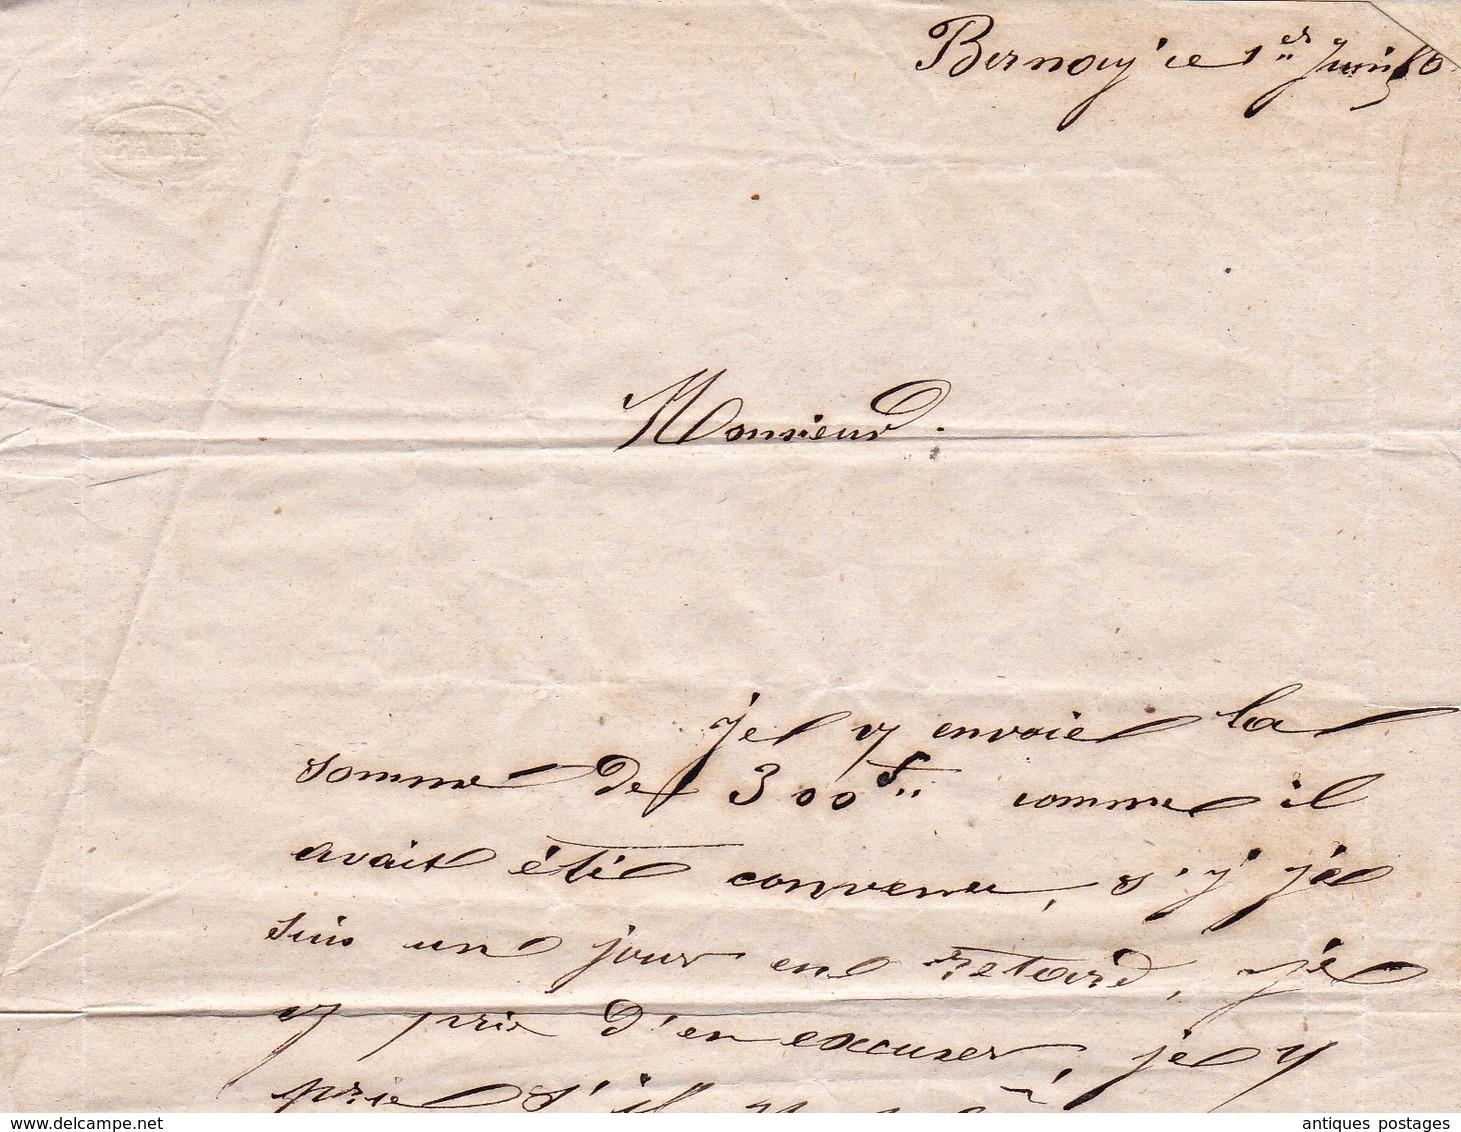 Bernay ce 1er Juin 60
BATH
Monsieur.
je v envoie la
somme de 300 f. comme il
avait été convenu, s'y je
suis un jour en retard, je
v prie d'en excuser, je v
prie s'il v
www.delcampe.net
antiques postages